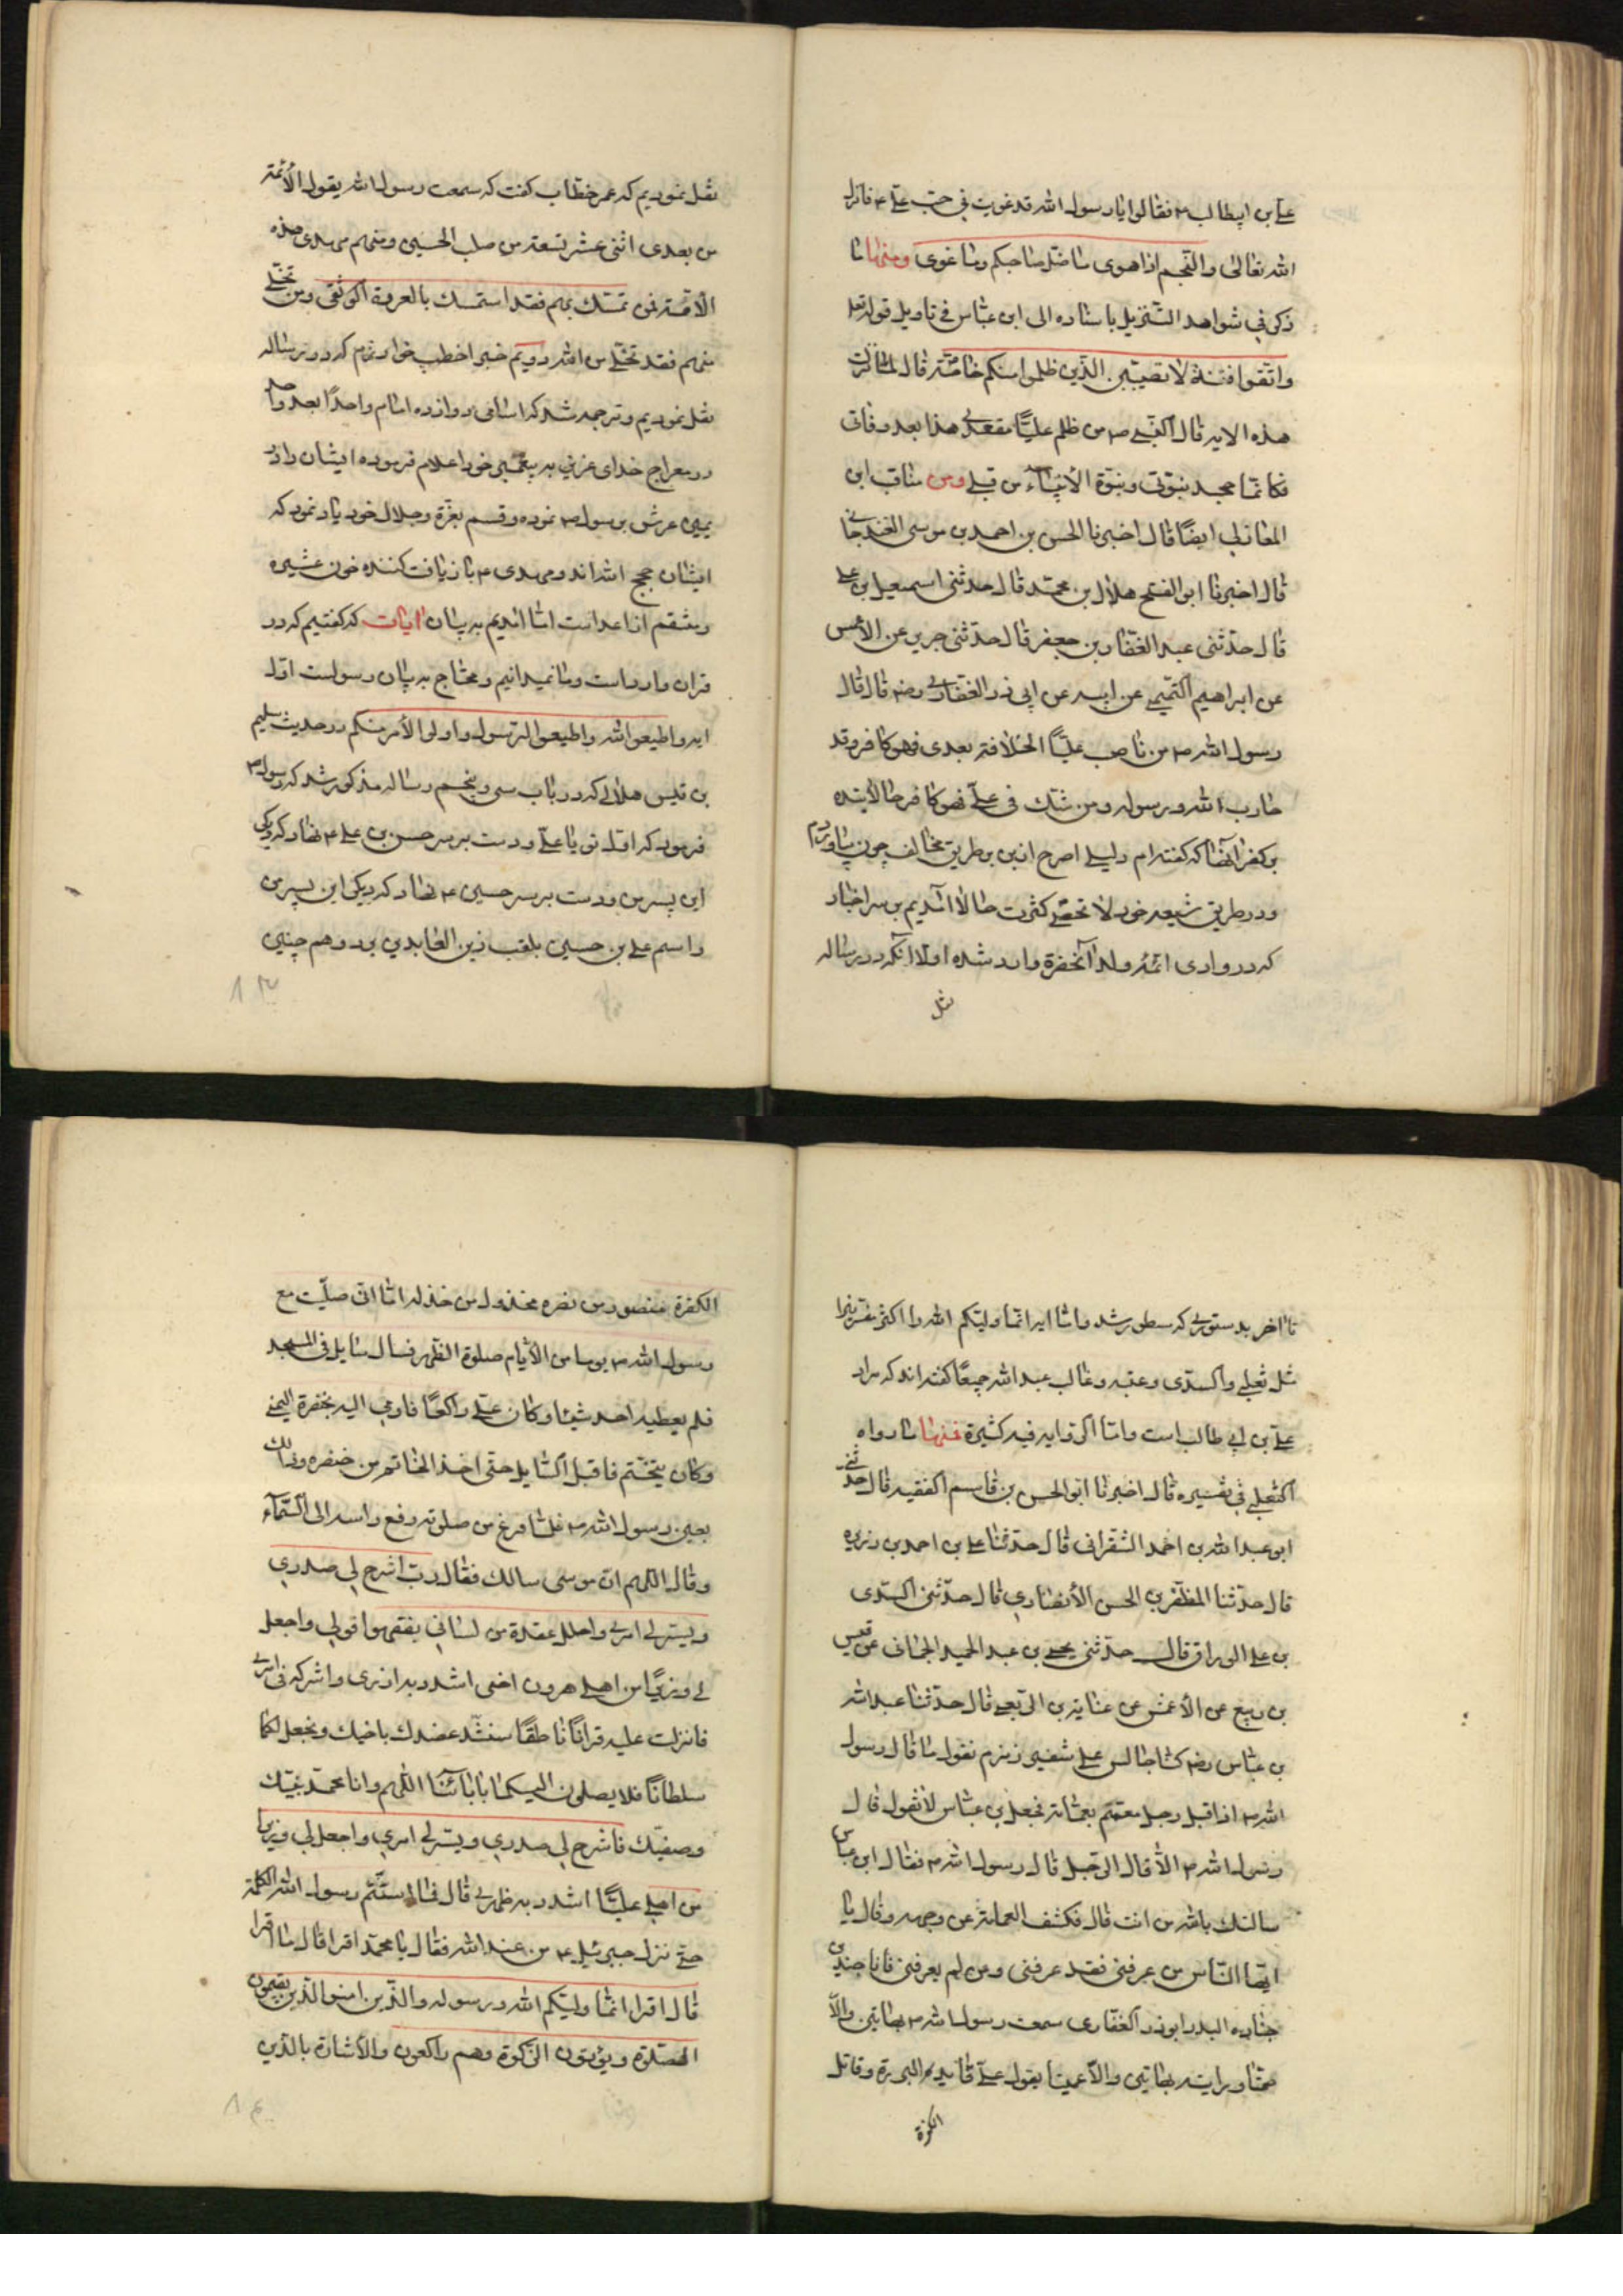 علی بن ابیطالب ۴ فقالوا یا رسول الله قد غویت فی حب علی ۴ فانزل
الله تعالی والنجم اذا هوی ما ضل صاحبکم وما غوی ومنها ما
ذکر فی شواهد التنزیل باسناده الی ابن عباس فی تاویل قوله تعا
واتقوا فتنة لا تصیبن الذین ظلموا منکم خاصة قال لما نزلت
هذه الایه قال النبی ص من ظلم علیًا مقعدی هذا بعد وفاتی
فکانما جحد نبوتی ونبوة الأنبیاء من قبلی ومن مناقب ابن
المغازلی ایضًا قال اخبرنا الحسن بن احمد بن موسی الغندجانی
قال اخبرنا ابو الفتح هلال بن محمد قال حدثنی اسمعیل بن علی
قال حدثنی عبد الغفار بن جعفر قال حدثنی جریر عن الاعمش
عن ابراهیم التیمی عن ابیه عن ابی ذر الغفاری رض قال قال
رسول الله ص من ناصب علیًا الخلافة بعدی فهو کافر وقد
حارب الله ورسوله ومن شک فی علی فهو کافر حالا بنده
بر کفر آنها که گفته‌ام دلیلی اصرح ازین بر طریق مخالف چون بیاورم
ودر طریق شیعه خود لا تحصی کثرت حالا آمدیم بر سر اخبار
که در وادی ائمه ولد آنحضرة وارد شده اولا انکه در رساله
نقل
نقل نمودیم که عمر خطاب گفت که سمعت رسول الله یقول الأئمة
من بعدی اثنی عشر تسعة من صلب الحسین ومنهم مهدی هذه
الأمة فمن تمسک بهم فقد استمسک بالعروة الوثقی ومن تخلی
منهم فقد تخلی من الله دویم خبر اخطب خوارزم که در رساله
نقل نمودیم وترجمه شد که اسامی دوازده امام واحدًا بعد واحد
در معراج خدای عز وجل به پیغمبر خود اعلام فرموده ایشان را در
یمین عرش برسول ص نموده وقسم بعزة وجلال خود یاد نمود که
ایشان حجج الله‌اند ومهدی ۴ بازیافت کننده خون عشیره
ومنتقم از اعداست اما آمدیم به بیان ایات که گفتیم که در
قران وارد است وما نمیدانیم ومحتاج به بیان رسولست اول
ایه واطیعوا الله واطیعوا الرسول واولو الأمر منکم در حدیث سلیم
بن قیس هلالی که در باب سی وپنجم رساله مذکور شد که رسول ص
فرمود که اول تویی یا علی ودست بر سر حسن بن علی ۴ نهاد که دیگری
این پسر من ودست بر سر حسین ۴ نهاد که دیگری این پسر من
واسم علی بن حسین بلقب زین العابدین برد وهم چنین
۸۳
تا آخر بدستوری که مسطور شد واما ایه انما ولیکم الله را اکثر مفسرین
مثل ثعلبی والسدی وعتبه وغالب عبد الله جمیعًا گفته‌اند که مراد
علی بن ابی طالب است واما الروایه فیه کثیرة فمنها ما رواه
الثعلبی فی تفسیره قال اخبرنا ابو الحسن بن قاسم الفقیه قال حدثنی
ابو عبد الله بن احمد الشعرانی قال حدثنا علی بن احمد بن رزین
قال حدثنا المظفر بن الحسن الأنصاری قال حدثنی السدی
بن علی الوراق قال حدثنی یحیی بن عبد الحمید الجمانی عن قیس
بن ربیع عن الأعمش عن عنایة بن الربعی قال حدثنا عبد الله
بن عباس رض کنا جالس علی شفیر زمزم نقول ما قال رسول
الله ص اذ اقبل رجل معتم بعمامة فجعل بن عباس لا نقول قال
رسول الله ص الا قال الرجل قال رسول الله ص فقال ابن عباس
سالتک بالله من انت قال فکشف العمامة عن وجهه وقال یا
ایها الناس من عرفنی فقد عرفنی ومن لم یعرفنی فانا جندب بن
جناده البدر ابو ذر الغفاری سمعت رسول الله ص بهاتین والا
صمتا ورایته بهاتین والا عمیتا یقول علی قائد البررة وقاتل
الکفرة
الکفرة منصور من نصره مخذول من خذله اما انی صلیت مع
رسول الله ص یوما من الأیام صلوة الظهر فسال سایل فی المسجد
فلم یعطیه احد شیئا وکان علی راکعًا فاومی الیه بخنصره الیمنی
وکان یتختم فاقبل السایل حتی اخذ الخاتم من خنصره وذلک
بعین رسول الله ص فلما فرغ من صلوته رفع راسه الی السمآء
وقال اللهم ان موسی سالک فقال رب اشرح لی صدری
ویسر لی امری واحلل عقدة من لسانی یفقهوا قولی واجعل
لی وزیرًا من اهلی هرون اخی اشدد به ازری واشرکه فی امری
فانزلت علیه قرانًا ناطقًا سنشد عضدک باخیک ونجعل لکما
سلطانًا فلا یصلون الیکما بایاتنا اللهم وانا محمد نبیک
وصفیک فاشرح لی صدری ویسر لی امری واجعل لی وزیرا
من اهلی علیًا اشدد به ظهری قال فما استتم رسول الله الکلمة
حتی نزل جبرئیل ۴ من عند الله فقال یا محمد اقرا قال ما اقرا
قال اقرا انما ولیکم الله ورسوله والذین امنوا الذین یقیمون
الصلوة ویؤتون الزکوة وهم راکعون والأشارة بالذی
۸۴